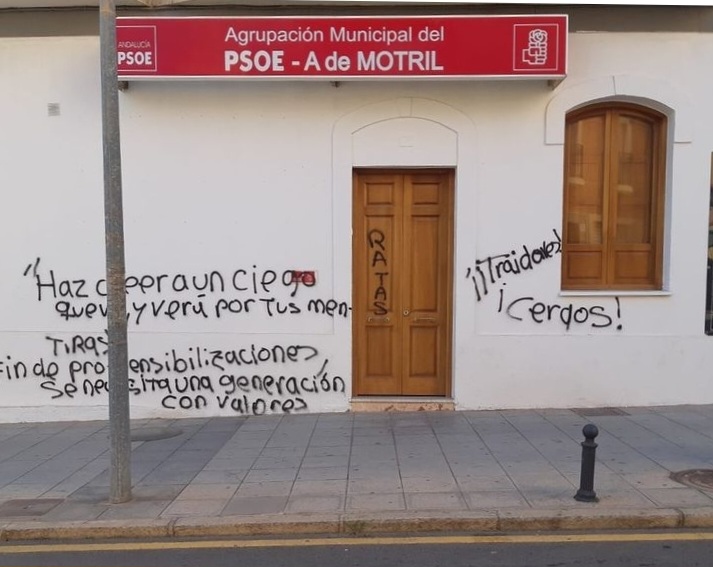 Agrupación Municipal del
ANDALUCÍA
PSOE
PSOE - A de MOTRIL
"Haz creer a un ciego
que ve, y verá por tus men-
TIRAS
Fin de pro sensibilizaciones,
se necesita una generación
con valores"
RATAS
¡¡Traidores!
¡Cerdos!